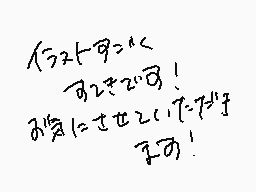 イラストすごく
すてきです！
お気にさせていただき
ます！